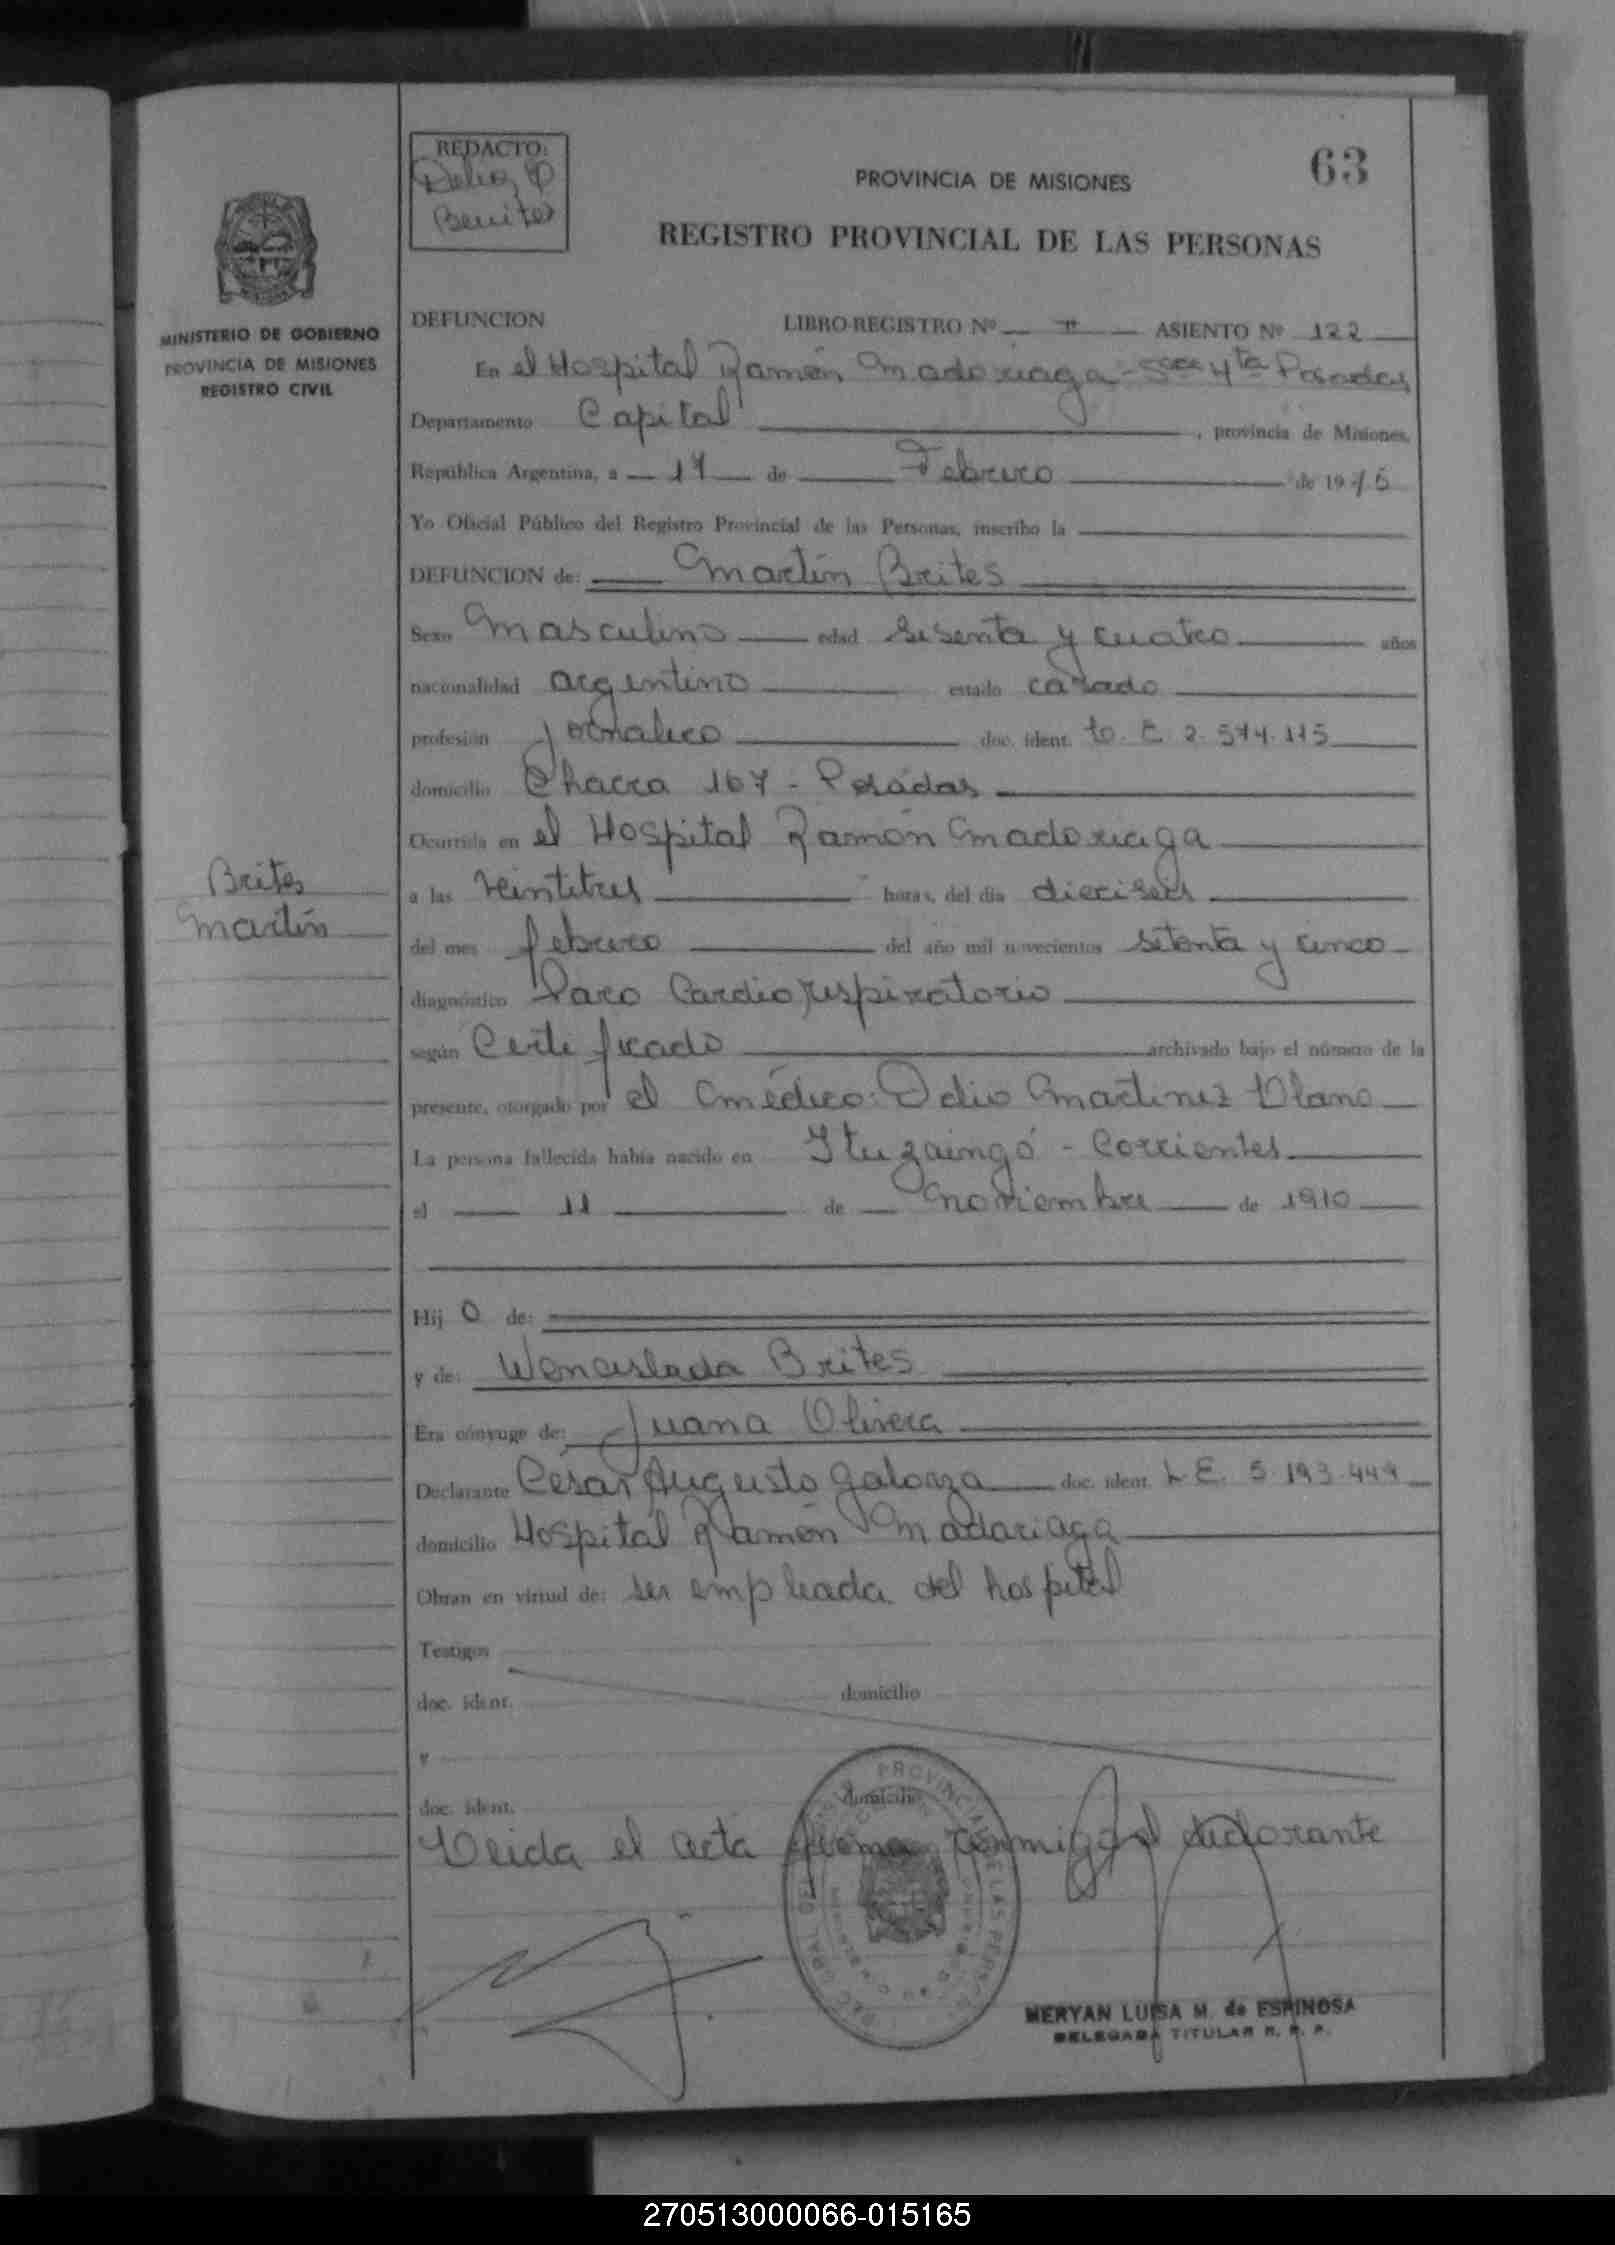 REDACTO:
Benitez
63
PROVINCIA DE MISIONES
REGISTRO PROVINCIAL DE LAS PERSONAS
MINISTERIO DE GOBIERNO
PROVINCIA DE MISIONES
REGISTRO CIVIL
DEFUNCION LIBRO-REGISTRO Nº — II — ASIENTO Nº 122
En el Hospital Ramón Madariaga - Secc 4ta Posadas
Departamento Capital, provincia de Misiones,
República Argentina, a — 17 — de Febrero de 1975
Yo Oficial Público del Registro Provincial de las Personas, inscribo la
DEFUNCION de: Martín Brites
Sexo Masculino edad sesenta y cuatro años
nacionalidad argentino estado casado
profesión Jornalero doc. ident. 2.574.115
domicilio Chacra 167 - Posadas
Ocurrida en el Hospital Ramón Madariaga
Brites
Martín
a las veintitres horas, del día dieciseis
del mes febrero del año mil novecientos setenta y cinco
diagnóstico Paro Cardio respiratorio
según Certificado archivado bajo el número de la
presente, otorgado por el médico: Delio Martinez Llano
La persona fallecida había nacido en Ituzaingó - Corrientes
el — 11 — de — Noviembre — de 1910
Hij o de:
y de: Wenceslada Brites
Era cónyuge de: Juana Olivera
Declarante César Augusto Galarza doc. ident. L.E. 5.193.449
domicilio Hospital Ramón Madariaga
Obran en virtud de: ser empleada del hospital
Testigos
doc. ident. domicilio
y
doc. ident. domicilio
Leida el acta firma conmigo el declarante
MERYAN LUISA M. de ESPINOSA
DELEGADA TITULAR R. P. P.
270513000066-015165